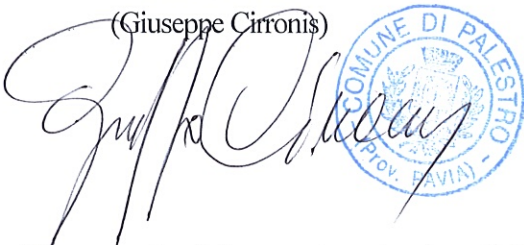 (Giuseppe Cirronis)
COMUNE DI PALESTRO
(Prov. PAVIA)